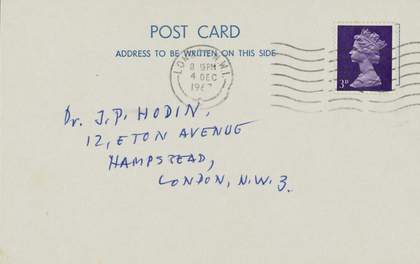 POST CARD
ADDRESS TO BE WRITTEN ON THIS SIDE
8 PM
4 DEC
3D
Dr. J.P. HODIN,
12, ETON AVENUE
HAMPSTEAD,
LONDON, N.W.3.